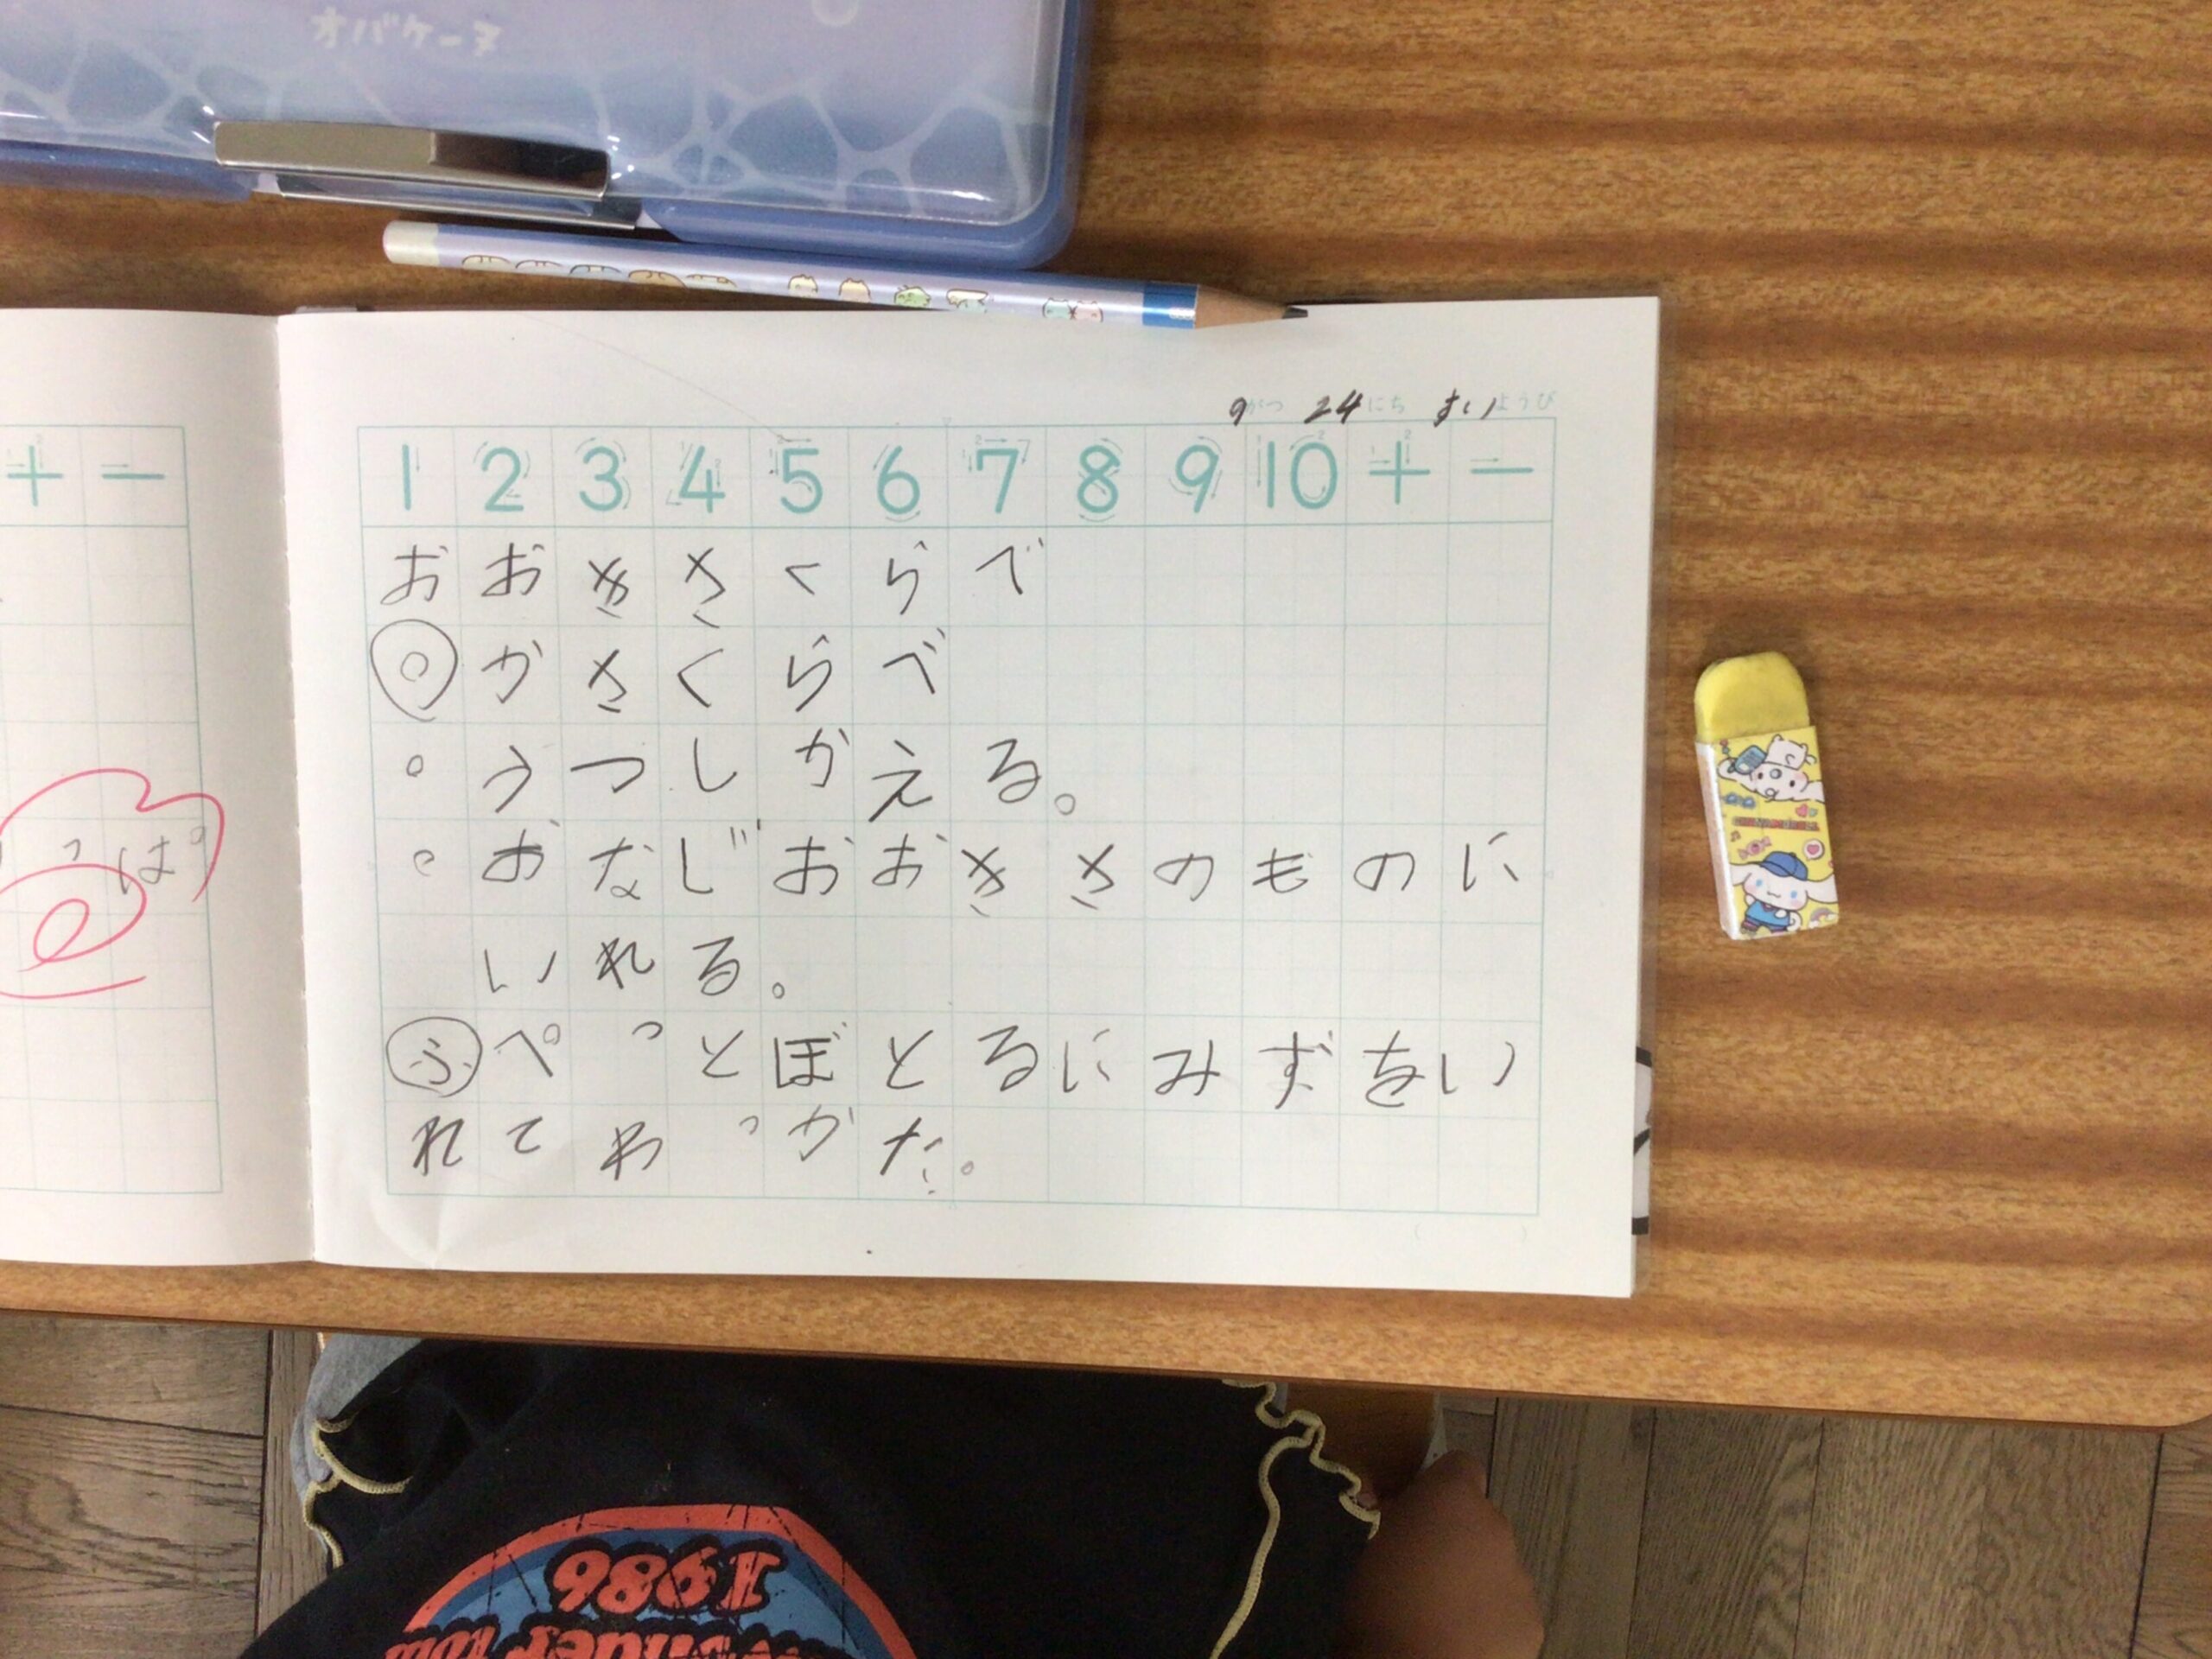 オバケーヌ
9がつ 24にち すいようび
+ −
1 2 3 4 5 6 7 8 9 10 + −
おおきさくらべ
◎かさくらべ
○うつしかえる。
○おなじおおきさのものに
いれる。
っぱ
ふぺっとぼとるにみずをい
れてわっかた。
1986